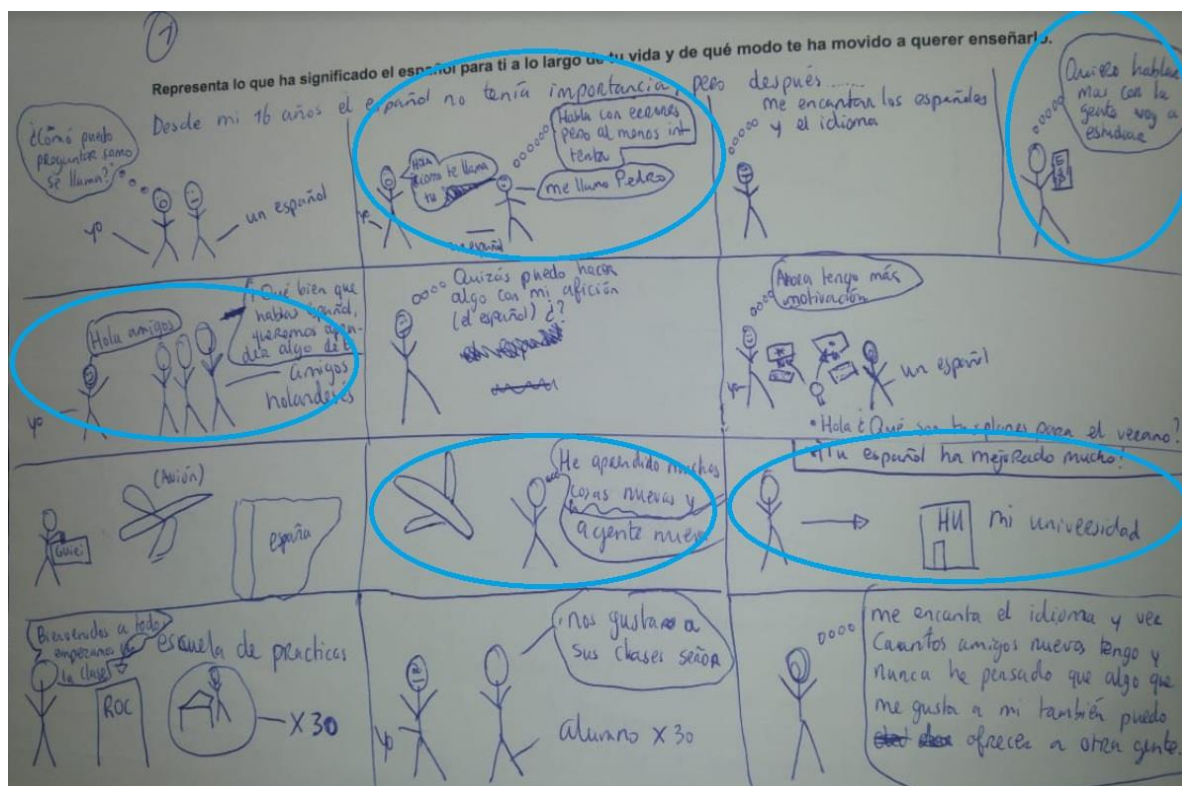 1
Representa lo que ha significado el español para ti a lo largo de tu vida y de qué modo te ha movido a querer enseñarlo.
Desde mi 16 años el español no tenía importancia, pero después......
¿Cómó puedo
preguntar como
se llama?
yo
un español
Hola
como te llama
tu
Habla con errores
pero al menos int
tenta
me llamo Pedro
yo
un español
me encantan los españoles
y el idioma
Quiero hablar
mas con la
gente voy a
estudiar
ESP
Hola amigos
¡Qué bien que
hablas español,
queremos apren-
der algo de ti
amigos
holandesés
yo
Quizás puedo hacer
algo con mi afición
(el español) ¿?
Ahora tengo más
motivación
yo
un español
• Hola ¿Qué son tus planes para el verano?
• ¡Tu español ha mejorado mucho!
(Avión)
españa
He aprendido muchas
cosas nuevas y
a gente nueva
HU
mi universidad
Bienvenidos a todo
empezamos
la clase
ROC
escuela de practicas
X 30
nos gustan a
sus clases señor
yo
alumno X 30
me encanta el idioma y ver
Cuantos amigos nuevos tengo y
nunca he pensado que algo que
me gusta a mi también puedo
ofrecer a otra gente.